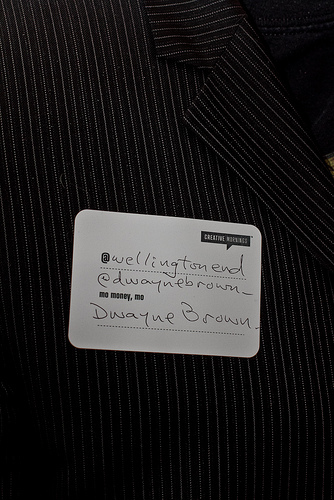 CREATIVE MORNINGS
@wellingtonend
@dwaynebrown_
mo money, mo
Dwayne Brown_